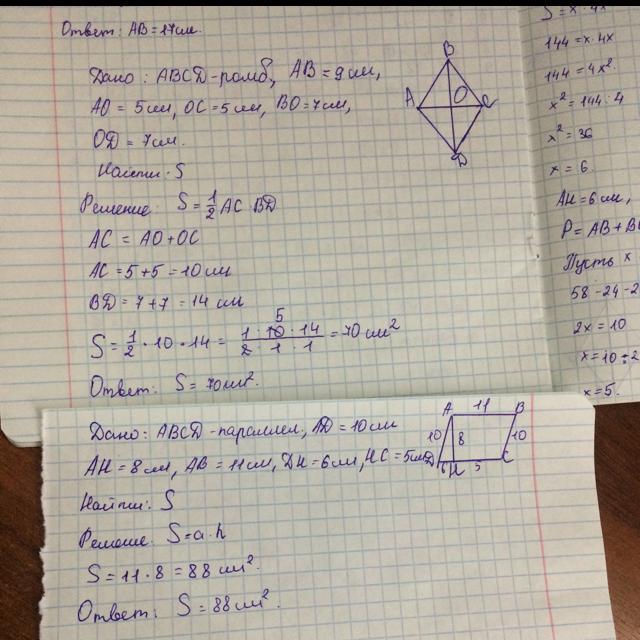 Ответ: AB = 17см.
Дано: ABCD-ромб, AB = 9 см,
AO = 5см, OC = 5см, BO = 7см,
OD = 7см.
Найти: S
Решение: S = 1/2 AC · BD
AC = AO + OC
AC = 5 + 5 = 10 см
BD = 7 + 7 = 14 см
S = 1/2 · 10 · 14 = 1 · 10 · 14 / 2 · 1 · 1 = 70 см²
5
Ответ: S = 70см².
B
A O C
D
S = x · 4x
144 = x · 4x
144 = 4x².
x² = 144 : 4
x² = 36
x = 6.
AH = 6 см,
P = AB + BC
Пусть x
58 - 24 - 2
2x = 10
x = 10 : 2
x = 5.
Дано: ABCD-параллел, AD = 10см
AH = 8см, AB = 11см, DH = 6см, HC = 5см
Найти: S
Решение: S = a · h
S = 11 · 8 = 88 см².
Ответ: S = 88см².
A 11 B
10 8 10
D 6 H 5 C